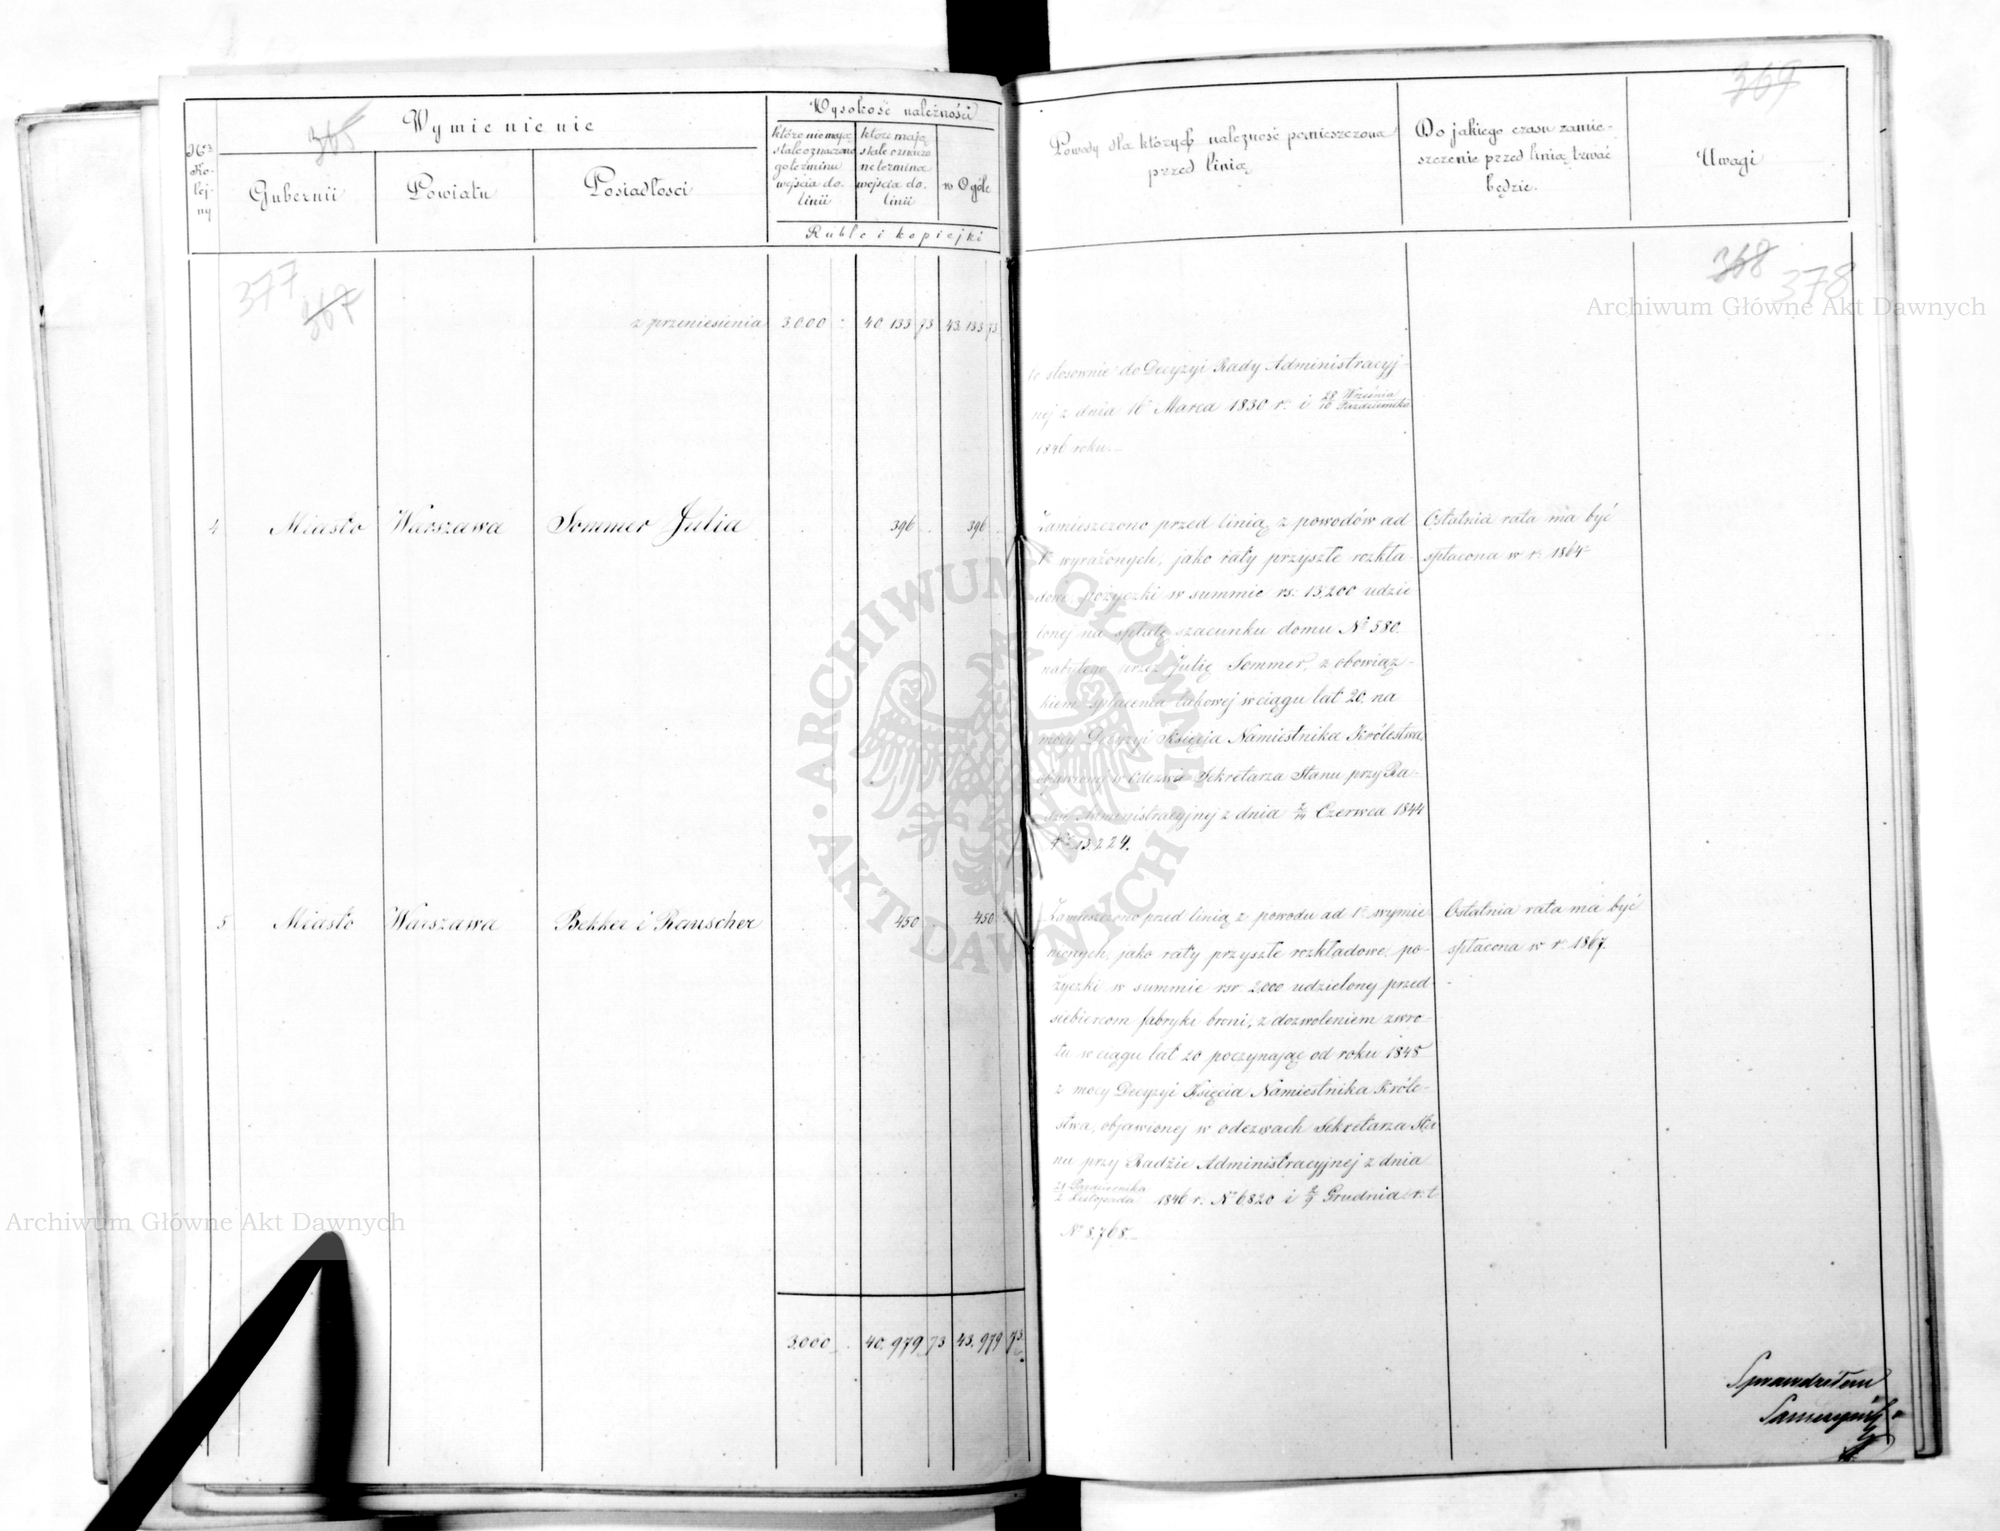 365
Wymienienie
Wysokość należności
No
Ko-
lej-
ny
Gubernii
Powiatu
Posiadłości
które nie mają
stale oznaczone
go terminu
wejścia do
linii
które mają
stale oznaczo
ne termina
wejścia do
linii
w Ogóle
Ruble i kopiejki
377
367
z przeniesienia 3.000 40.133 73 43.133 73
4 Miasto Warszawa Sommer Julia 396 396
5 Miasto Warszawa Bekker i Rauscher 450 450
3.000 40.979 73 43.979 73
369
Powody dla których należność pomieszczona
przed linią
Do jakiego czasu zamie-
szczenie przed linią trwać
będzie.
Uwagi
368
378
to stosownie do Decyzyi Rady Administracyj-
nej z dnia 16 Marca 1830 r. i 28 Września
10 Października
1846 roku.
Zamieszczono przed linią z powodów ad
1o wyrażonych, jako raty przyszłe rozkła-
dowe pożyczki w summie rs. 15,200 udzie-
lonej na spłatę szacunku domu No 580.
nabytego przez Julię Sommer, z obowiąz-
kiem spłacenia takowej w ciągu lat 20, na
mocy Decyzyi Księcia Namiestnika Królestwa,
objawionej w odezwie Sekretarza Stanu przy Ra-
dzie Administracyjnej z dnia Czerwca 1844
No 13.224.
Ostatnia rata ma być
spłacona w r. 1864
Zamieszczono przed linią z powodu ad 1o wymie
nionych, jako raty przyszłe rozkładowe, po-
życzki w summie rsr. 2000 udzielonej przed-
siebiercom fabryki broni, z dozwoleniem zwro-
tu w ciągu lat 20 poczynając od roku 1848
z mocy Decyzyi Księcia Namiestnika Króle-
stwa, objawionej w odezwach Sekretarza Sta
nu przy Radzie Administracyjnej z dnia
21 Października
2 Listopada 1846 r. No 6820 i Grudnia r. t.
No 8.768.
Ostatnia rata ma być
spłacona w r. 1867.
Sprawdziłem
Archiwum Główne Akt Dawnych
Archiwum Główne Akt Dawnych
ARCHIWUM GŁÓWNE AKT DAWNYCH